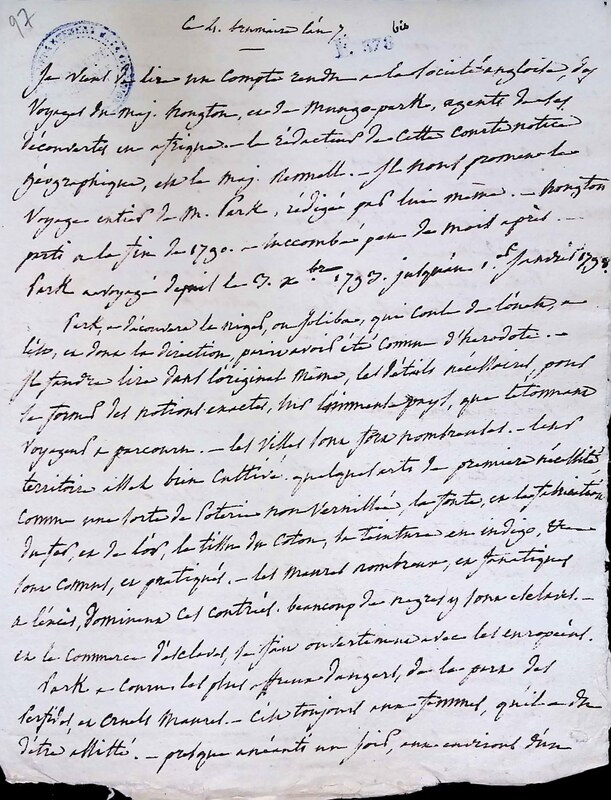 97
Ce 4. brumaire l'an 7.
bis
F. 373
Je viens de lire un compte rendu a la société angloise, des
Voyages du maj. hougton, et de Mungo-park, agents de ses
découvertes en afrique. - le rédacteur de cette courte notice
géographique, est le maj. Rennell. - Il nous promet le
Voyage entier de M. Park, rédigé par lui même. - hougton
parti a la fin de 1790. - succombé peu de mois après. -
Park a voyagé depuis le 3. x.bre 1793. jusqu'au 1.er Janvier 1798.
Park, a découvert le niger, ou joliba, qui coule de l'ouest, a
l'est, et dont la direction, paroit avoir été connue d'hérodote. -
Il faudra lire dans l'original même, les détails nécessaires, pour
se former des notions exactes, sur l'immense pays, que l'étonnant
voyageur a parcouru. - les villes sont fort nombreuses. - leur
territoire assez bien cultivé. quelques arts de première nécessité
comme une sorte de poterie non vernissée, la fonte, et la fabrication
du fer, et de l'or, le tissu du coton, la teinture en indigo, &c
sont connus, et pratiqués. - les maures nombreux, et fanatiques
a l'excès, dominent ces contrées. beaucoup de negres y sont esclaves. -
et le commerce d'esclaves, se fait ouvertement avec les européens.
Park a couru les plus affreux dangers, de la part des
perfides, et cruels maures. - c'est toujours aux femmes, qu'il a du
d'être assisté. - presque anéanti une fois, aux environs d'une